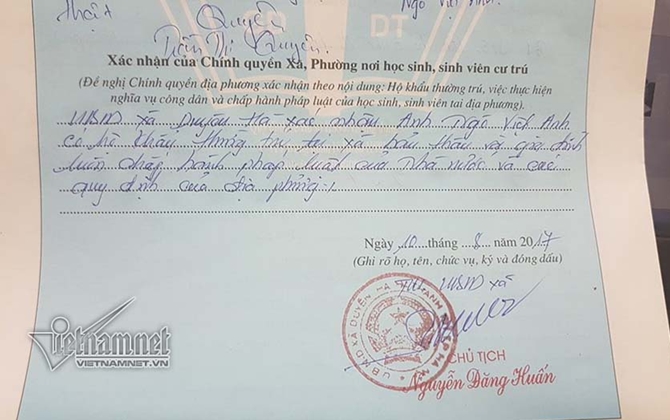 Ngô Viết Anh.
thật
Quyền
Trần Thị Quyền.
DT
Xác nhận của Chính quyền Xã, Phường nơi học sinh, sinh viên cư trú
(Đề nghị Chính quyền địa phương xác nhận theo nội dung: Hộ khẩu thường trú, việc thực hiện
nghĩa vụ công dân và chấp hành pháp luật của học sinh, sinh viên tại địa phương).
UBND xã Duyên Hà xác nhận Anh Ngô Viết Anh
có hộ khẩu thường trú tại xã bản thân và gia đình
luôn chấp hành pháp luật của Nhà nước và các
quy định của địa phương.
Ngày 10 tháng 8 năm 2017
(Ghi rõ họ, tên, chức vụ, ký và đóng dấu)
TM UBND xã
U.B.N.D XÃ DUYÊN HÀ
CHỦ TỊCH
Nguyễn Đăng Huấn
vietnamnet
VIETNAMNET.VN